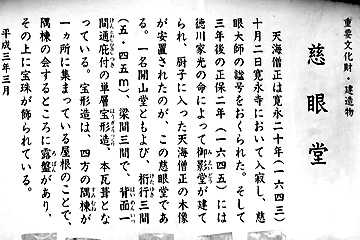 重要文化財・建造物
慈眼堂
天海僧正は寛永二十年(一六四三)
十月二日寛永寺において入寂し、慈
眼大師の諡号をおくられた。そして
三年後の正保二年(一六四五)には
徳川家光の命によって御影堂が建て
られ、厨子に入った天海僧正の木像
が安置されたのが、この慈眼堂であ
る。一名開山堂ともよび、桁行三間
(五・四五m)、梁間三間で、背面一
間通庇付の単層宝形造、本瓦葺とな
っている。宝形造は、四方の隅棟が
一ヵ所に集まっている屋根のことで、
隅棟の会するところに露盤があり、
その上に宝珠が飾られている。
平成三年三月